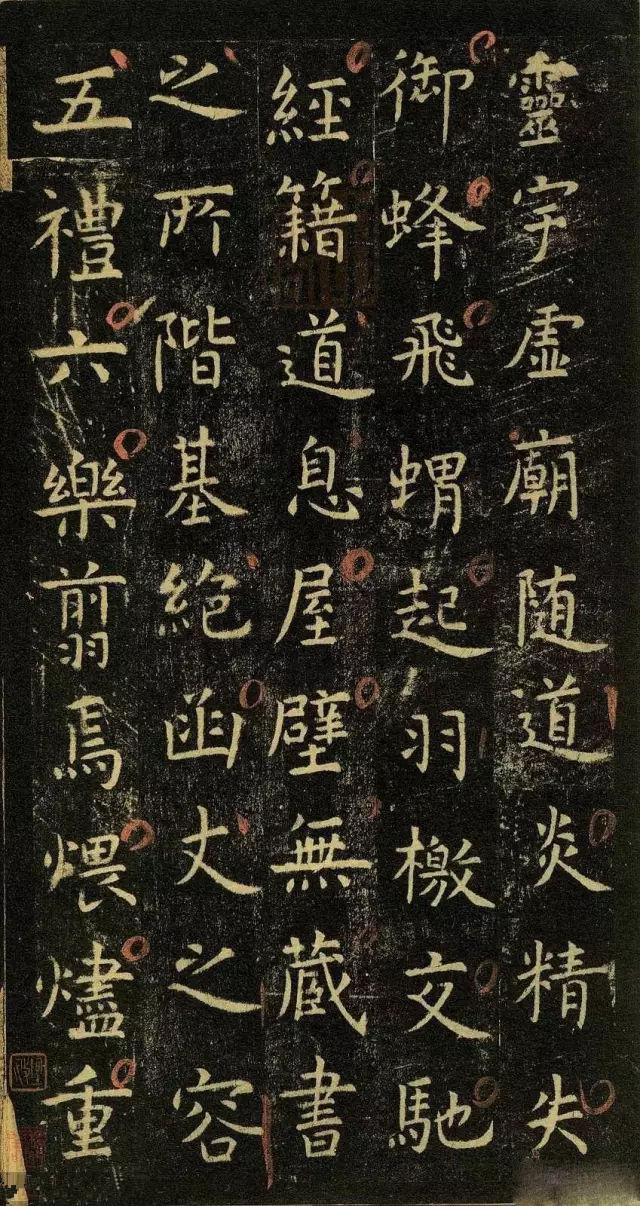 靈宇虛廟随道炎精失
御蜂飛蝟起羽檄文馳
經籍道息屋壁無藏書
之所階基絕函丈之容
五禮六樂翦焉煨燼重